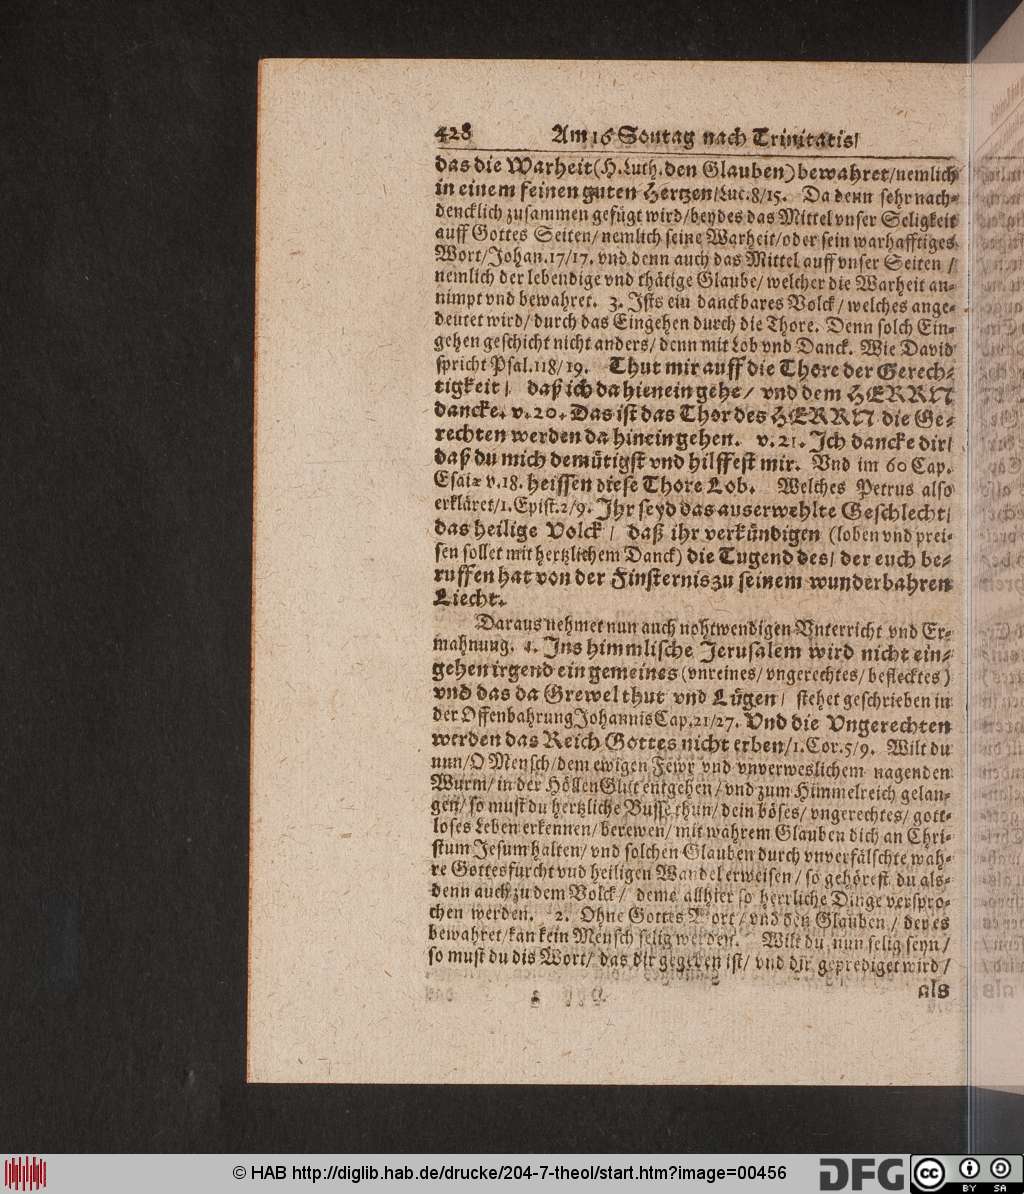 428 Am 16 Sontag nach Trinitatis/
das die Warheit (H. Luth. den Glauben) bewahret/ nemlich
in einem feinen guten Hertzen/ Luc. 8/15. Da denn sehr nach-
dencklich zusammen gefügt wird/ beydes das Mittel vnser Seligkeit
auff Gottes Seiten/ nemlich seine Warheit/ oder sein warhafftiges
Wort/ Johan. 17/17. vnd denn auch das Mittel auff vnser Seiten /
nemlich der lebendige vnd thätige Glaube/ welcher die Warheit an-
nimpt vnd bewahret. 3. Ists ein danckbares Volck/ welches ange-
deutet wird/ durch das Eingehen durch die Thore. Denn solch Ein-
gehen geschicht nicht anders/ denn mit Lob vnd Danck. Wie David
spricht Psal. 118/19. Thut mir auff die Thore der Gerech-
tigkeit/ daß ich da hienein gehe/ vnd dem HERRN
dancke. v. 20. Das ist das Thor des HERRN die Ge-
rechten werden da hinein gehen. v. 21. Ich dancke dir/
daß du mich demütigst vnd hilffest mir. Vnd im 60 Cap.
Esaiæ v. 18. heissen diese Thore Lob. Welches Petrus also
erkläret/ 1. Epist. 2/9. Ihr seyd das auserwehlte Geschlecht/
das heilige Volck/ daß ihr verkündigen (loben vnd prei-
sen sollet mit hertzlichem Danck) die Tugend des/ der euch be-
ruffen hat von der Finsternis zu seinem wunderbahren
Liecht.
Daraus nehmet nun auch nohtwendigen Vnterricht vnd Er-
mahnung. 1. Ins himmlische Jerusalem wird nicht ein-
gehen irgend ein gemeines (vnreines/ vngerechtes/ beflecktes)
vnd das da Grewel thut vnd Lügen/ stehet geschrieben in
der Offenbahrung Johannis Cap. 21/27. Vnd die Vngerechten
werden das Reich Gottes nicht erben/ 1. Cor. 5/9. Wilt du
nun/ O Mensch/ dem ewigen Fewr vnd vnverweslichem nagenden
Wurm/ in der Höllen Glut entgehen/ vnd zum Himmelreich gelan-
gen/ so must du hertzliche Busse thun/ dein böses/ vngerechtes/ gott-
loses Leben erkennen/ berewen/ mit wahrem Glauben dich an Chri-
stum Jesum halten/ vnd solchen Glauben durch vnverfälschte wah-
re Gottesfurcht vnd heiligen Wandel erweisen/ so gehörest du als-
denn auch zu dem Volck/ deme allhier so herrliche Dinge verspro-
chen werden. 2. Ohne Gottes Wort/ vnd den Glauben / der es
bewahret/ kan kein Mensch selig werden. Wilt du nun selig seyn/
so must du dis Wort/ das dir gegeben ist/ vnd dir geprediget wird/
als
© HAB http://diglib.hab.de/drucke/204-7-theol/start.htm?image=00456
DFG
cc BY SA